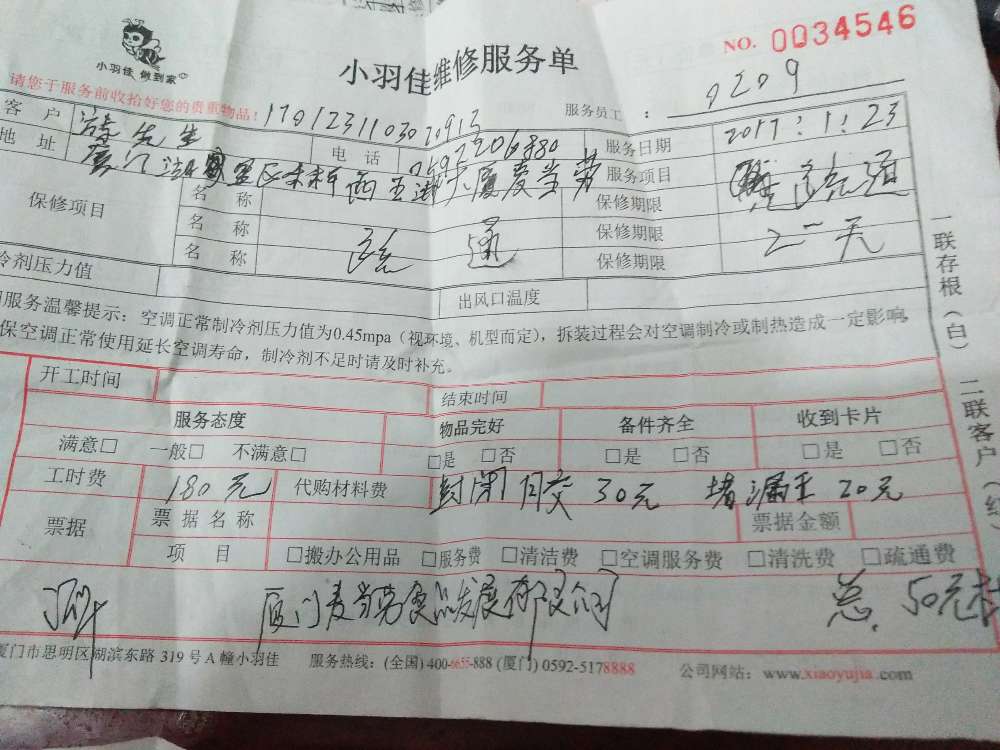 NO. 0034546
小羽佳维修服务单
小羽佳 做到家
请您于服务前收拾好您的贵重物品!
服务员工: 0209
1701231103020912
客户 先生 电话 服务日期 2017:1:23
地址 服务项目 疏通
保修项目 名称 保修期限
名称 疏通 保修期限 一天
名称 保修期限
冷剂压力值 出风口温度
服务温馨提示:空调正常制冷剂压力值为0.45mpa(视环境、机型而定),拆装过程会对空调制冷或制热造成一定影响,
保空调正常使用延长空调寿命,制冷剂不足时请及时补充。
开工时间 结束时间
服务态度 物品完好 备件齐全 收到卡片
满意□ 一般□ 不满意□ □是 □否 □是 □否 □是 □否
工时费 180元 代购材料费 封闭 30元 堵漏王 20元
票据 票据名称 票据金额
项目 □搬办公用品 □服务费 □清洁费 □空调服务费 □清洗费 □疏通费
厦门麦当劳食品发展有限公司 总. 50元
厦门市思明区湖滨东路 319 号 A 幢小羽佳 服务热线:(全国) 400-6655-888 (厦门) 0592-5178888 公司网站:www.xiaoyujia.com
一联存根(白) 二联客户(红)